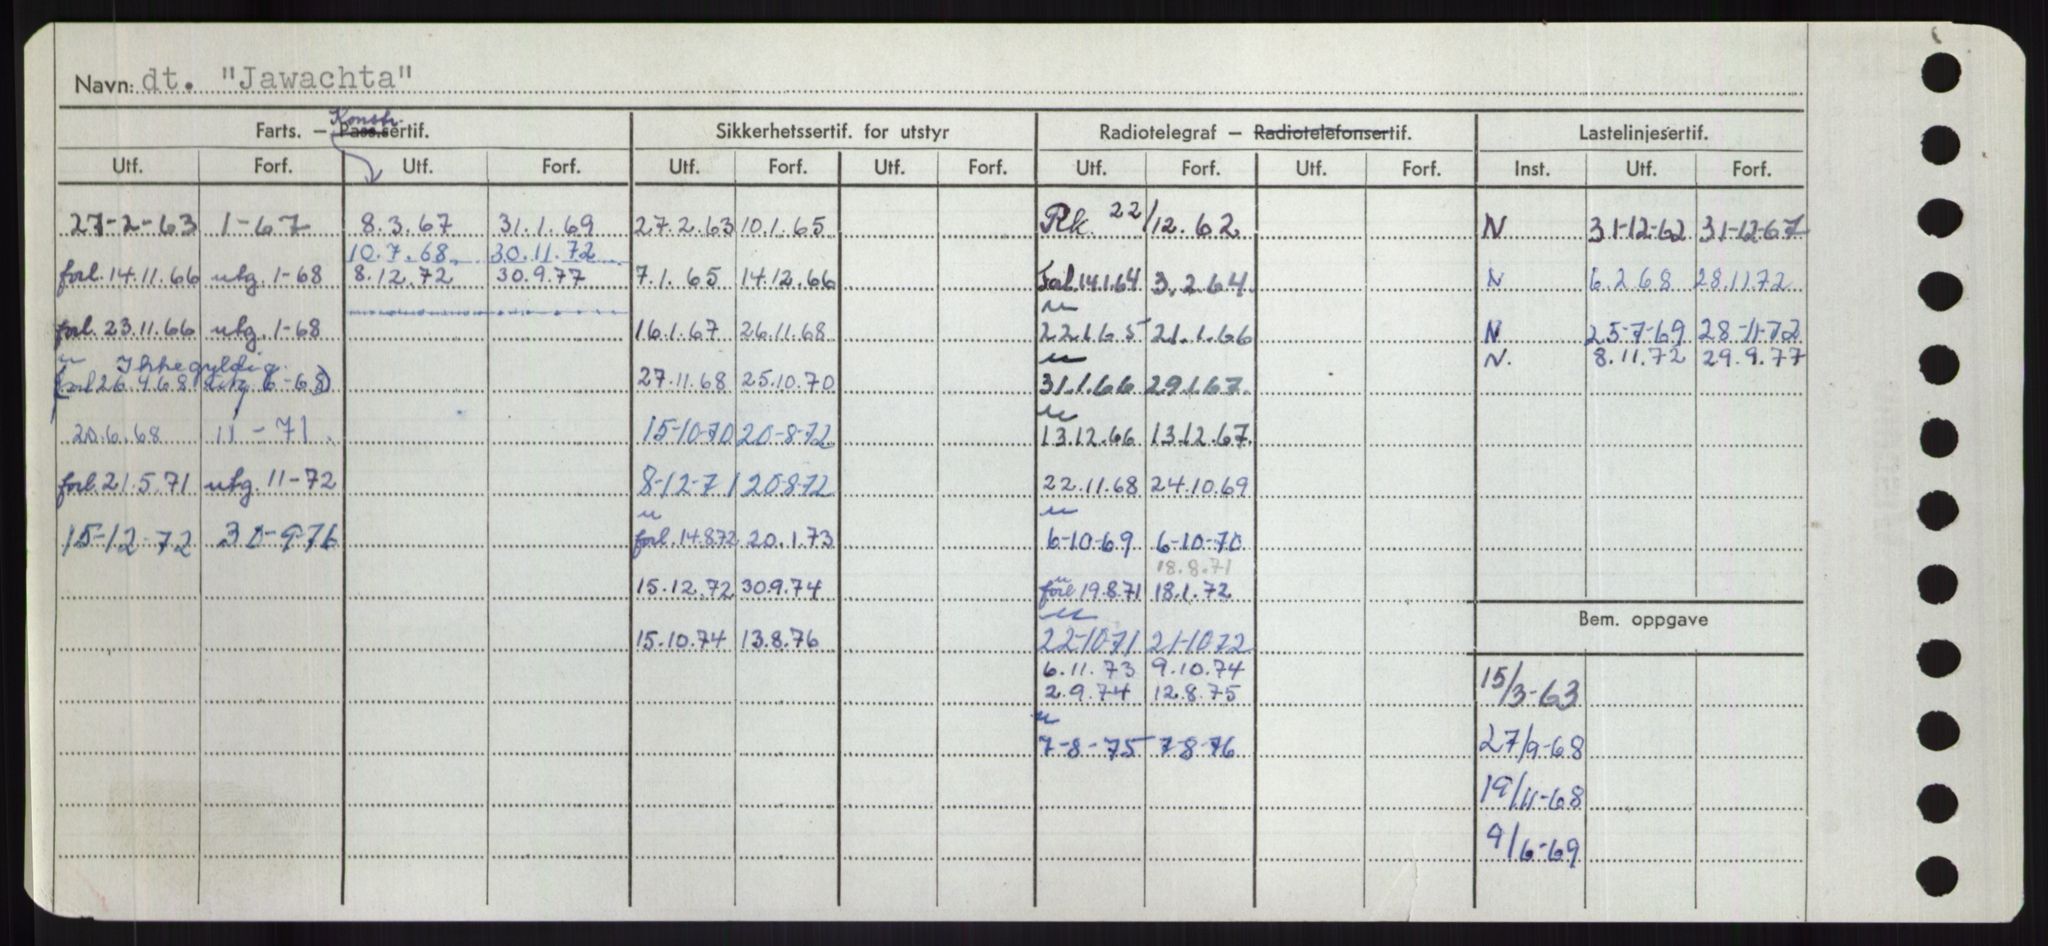 Navn: dt. "Jawachta"
Konstr.
Farts. — Pass.sertif. Sikkerhetssertif. for utstyr Radiotelegraf — Radiotelefonsertif. Lastelinjesertif.
Utf. Forf. Utf. Forf. Utf. Forf. Utf. Forf. Utf. Forf. Utf. Forf. Inst. Utf. Forf.
27-2-63 1-67 8.3.67 31.1.69 27.2.63 10.1.65 Rk. 22/12.62 N 31-12-62 31-12-67
10.7.68 30.11.72
forl. 14.11.66 utg. 1-68 8.12.72 30.9.77 7.1.65 14.12.66 Forl. 14.1.64 3.2.64 N 6.2.68 28.11.72
u
forl. 23.11.66 utg. 1-68 16.1.67 26.11.68 22.1.65 21.1.66 N 25-7-69 28-11-72
u Ikke gyldig u N. 8.11.72 29.9.77
(forl 26.4.68 utg 6-68) 27.11.68 25.10.70 31.1.66 29.1.67
u
20.6.68 11-71 15-10-70 20-8-72 13.12.66 13.12.67
forl. 21.5.71 utg. 11-72 8-12-71 20-8-72 22.11.68 24.10.69
u u
15-12-72 30-9-76 forl. 14.8.72 20.1.73 6-10-69 6-10-70
18.8.71
u
15.12.72 30.9.74 forl 19.8.71 18.1.72
u Bem. oppgave
15.10.74 13.8.76 22-10-71 21-10-72
6.11.73 9.10.74
2.9.74 12.8.75 15/3-63
u
7-8-75 7-8-76 27/9-68
19/11-68
9/6-69